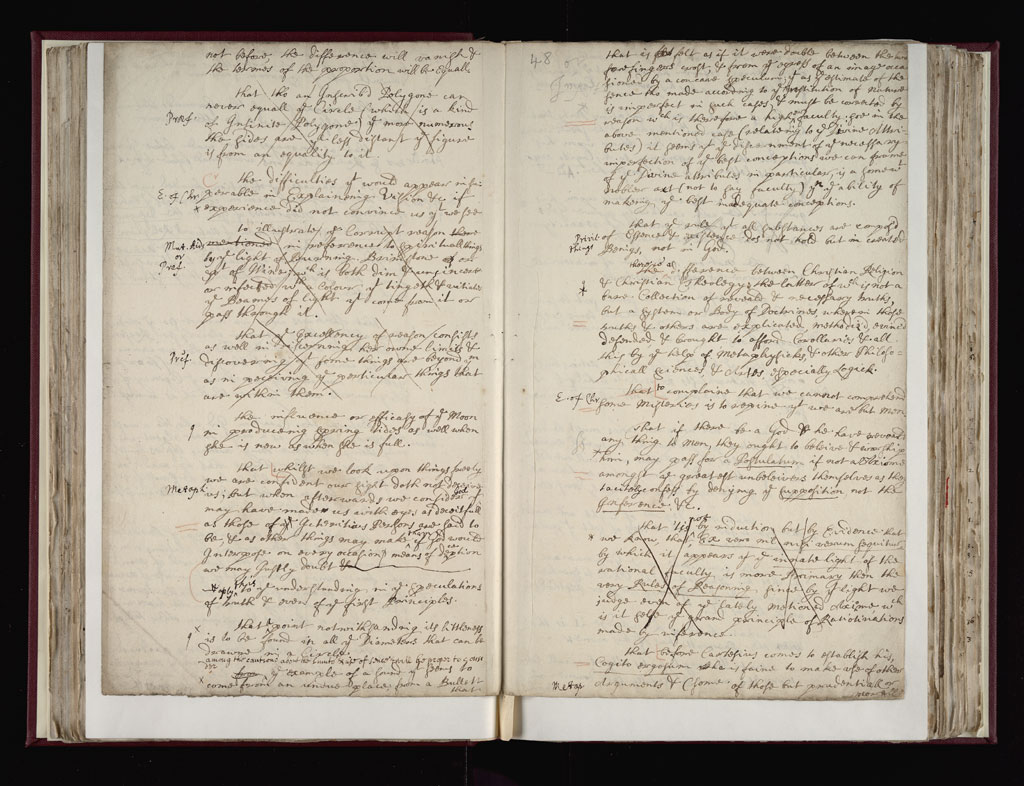 not before, the difference will vanish &
the termes of the proportion will be Equall.
that tho an Inscrib'd Polygone can
never equall ye Circle (which is a kind
Pref.
of Infinite Polygone) ye more numerous
the sides are ye less distant ye figure
is from an equality to it.
the difficulties yt would appear insu-
E. of Chr.
perable in Explaineing Vision &c if
x experience did not convince us yt we see
to illustrate ye Corrupt reason there
mentioned in preference to spirituall things
Mat. Aids
or
Pref.
by ye light of burning Brimstone or
of Wine, wch is both dim &
or infected with a colour yt tingeth & vitiates
ye Beames of light yt come from it or
pass through it.
that ye Excellency of reason consists
as well in discerning her owne limits &
Pref.
discovering yt some things are beyond
as in perceiving ye particular things that
are within them.
the influence or efficacy of ye Moon
in producing spring tides as well when
she is new as when she is full.
that whilst we look upon things purely
we are confident our sight doth not deceive
Metaph
us; but when afterwards we consider yt God
may have made us with eyes as deceitfull
as those of ye Icteritious Persons are said to
be, & as other things may make if God would
Interpose on every occasion means of deception
we may justly doubt
apply this to ye understanding in ye speculations
of truth & even of ye first Principles.
that a point notwithstanding its littleness
is to be found in all ye Diameters that can be
drawne in a Circle.
among the cautions about the limits & use of sense will be proper to
ye example of a sound yt seems to
x come from an undue place, from a Bullet
that
48
that is felt as if it were double between the two
fore fingers crost, & from ye of an image occa-
sioned by a concave speculum; yt as ye estimate of the
sence tho made according to ye Institution of Nature
is imperfect in such cases & must be corrected by
reason wch is therefore a higher faculty, soe in the
above mentioned case (relateing to ye Divine Attri-
butes) it seems yt ye discernment of ye necessary
imperfection of ye best conceptions we can frame
of ye Divine attributes in particular, is a
nobler act (not to say faculty) yn ye ability of
making ye best inadequate conceptions.
that ye rule yt all substances are compos'd
of Essence & existence does not hold but in created
Privil.
things
Beings, not in God.
theoreticall
the difference between Christian Religion
& Christian Theology; the latter of wch is not a
bare Collection of reveal'd & necessary truths,
but a system or Body of Doctrines, wherein those
truths & others are explicated, methodiz'd, evinc'd
defended & brought to afford Corollaries & all
this by ye help of Metaphysicks & other Philoso-
phicall sciences, & dictates, especially Logick.
that to complaine that we cannot comprehend
E. of Chr.
some Misteries is to repine yt we are but Men
that if there be a God & he have reveal'd
any thing to Men, they ought to beleive & worship
him, may pass for a Postulatum if not a Axiome
amongst ye greatest unbeleivers themselves as they
tacitely confess by denying ye supposition not the
Inference. &c.
that tis not by induction but by Evidence that
x we know that Ex vero nil nisi verum sequitur,
by which it appears yt ye innate light of the
rational faculty is more Primary then the
very Rules of Reasoning, since by yt light we
judge even of ye lately mentioned Axiome wch
is it self ye grand principle of Ratiotinations
made by inference.
that before Cartesius comes to establish his
Cogito ergo sum he is faine to make use of other
Metap
arguments & (some of those but prudentiall or